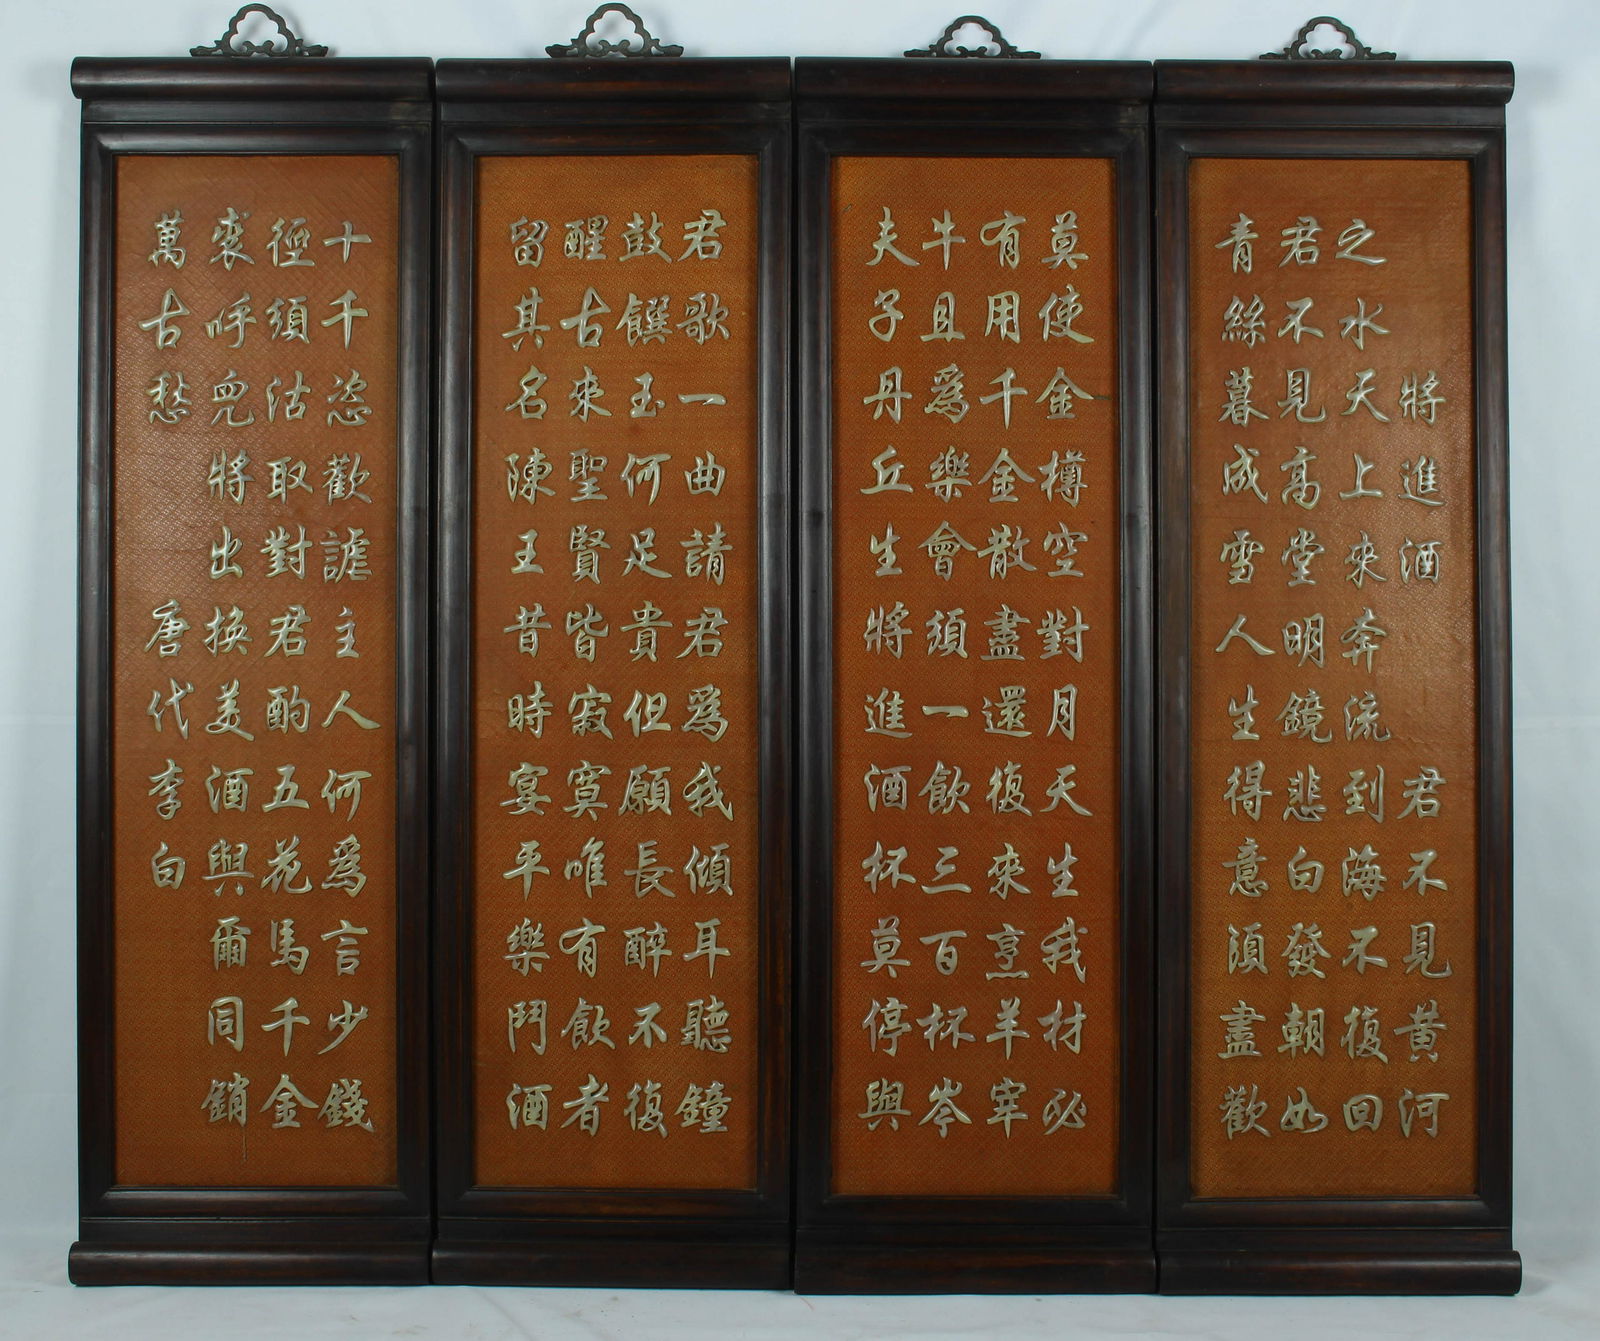 將進酒 君不見黄河
之水天上來奔流到海不復回
君不見高堂明鏡悲白發朝如
青絲暮成雪人生得意須盡歡
莫使金樽空對月天生我材必
有用千金散盡還復來烹羊宰
牛且爲樂會須一飲三百杯岑
夫子丹丘生將進酒杯莫停與
君歌一曲請君爲我傾耳聽鐘
鼓饌玉何足貴但願長醉不復
醒古來聖賢皆寂寞唯有飲者
留其名陳王昔時宴平樂鬥酒
十千恣歡謔主人何爲言少錢
徑須沽取對君酌五花馬千金
裘呼兒將出換美酒與爾同銷
萬古愁 唐代李白